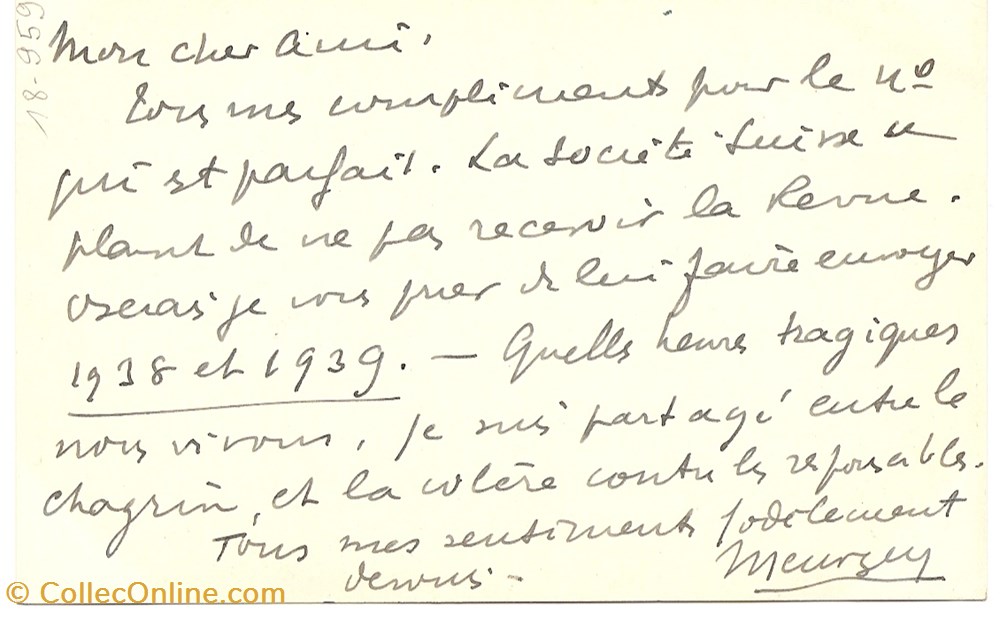 18-959
Mon cher Ami,
Tous mes compliments pour le nº
qui est parfait. La Société Suisse se
plaint de ne pas recevoir la Revue.
Oserais je vous prier de lui faire envoyer
1938 et 1939. — Quelles heures tragiques
nous vivons, je suis partagé entre le
chagrin, et la colère contre les responsables.
Tous mes sentiments fidèlement
dévoués -
Meurgey
© CollecOnline.com